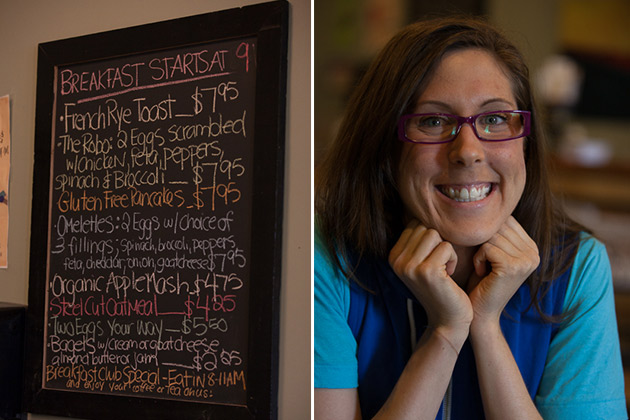 BREAKFAST STARTS AT 9
• French Rye Toast $7.95
• The Robo: 2 Eggs scrambled
w/chicken, feta, peppers,
spinach & Broccoli $7.95
Gluten Free Pancakes $7.95
• Omelettes: 2 Eggs w/choice of
3 fillings: spinach, brocoli, peppers
feta, cheddar, onion, goatcheese $7.95
• Organic Apple Mash $4.75
• Steel Cut Oatmeal $4.25
• Two Eggs Your Way $5.50
• Bagels w/cream or goat cheese
almond butter or jam $2.95
Breakfast Club Special - Eat in 8-11AM
and enjoy your coffee or tea on us!